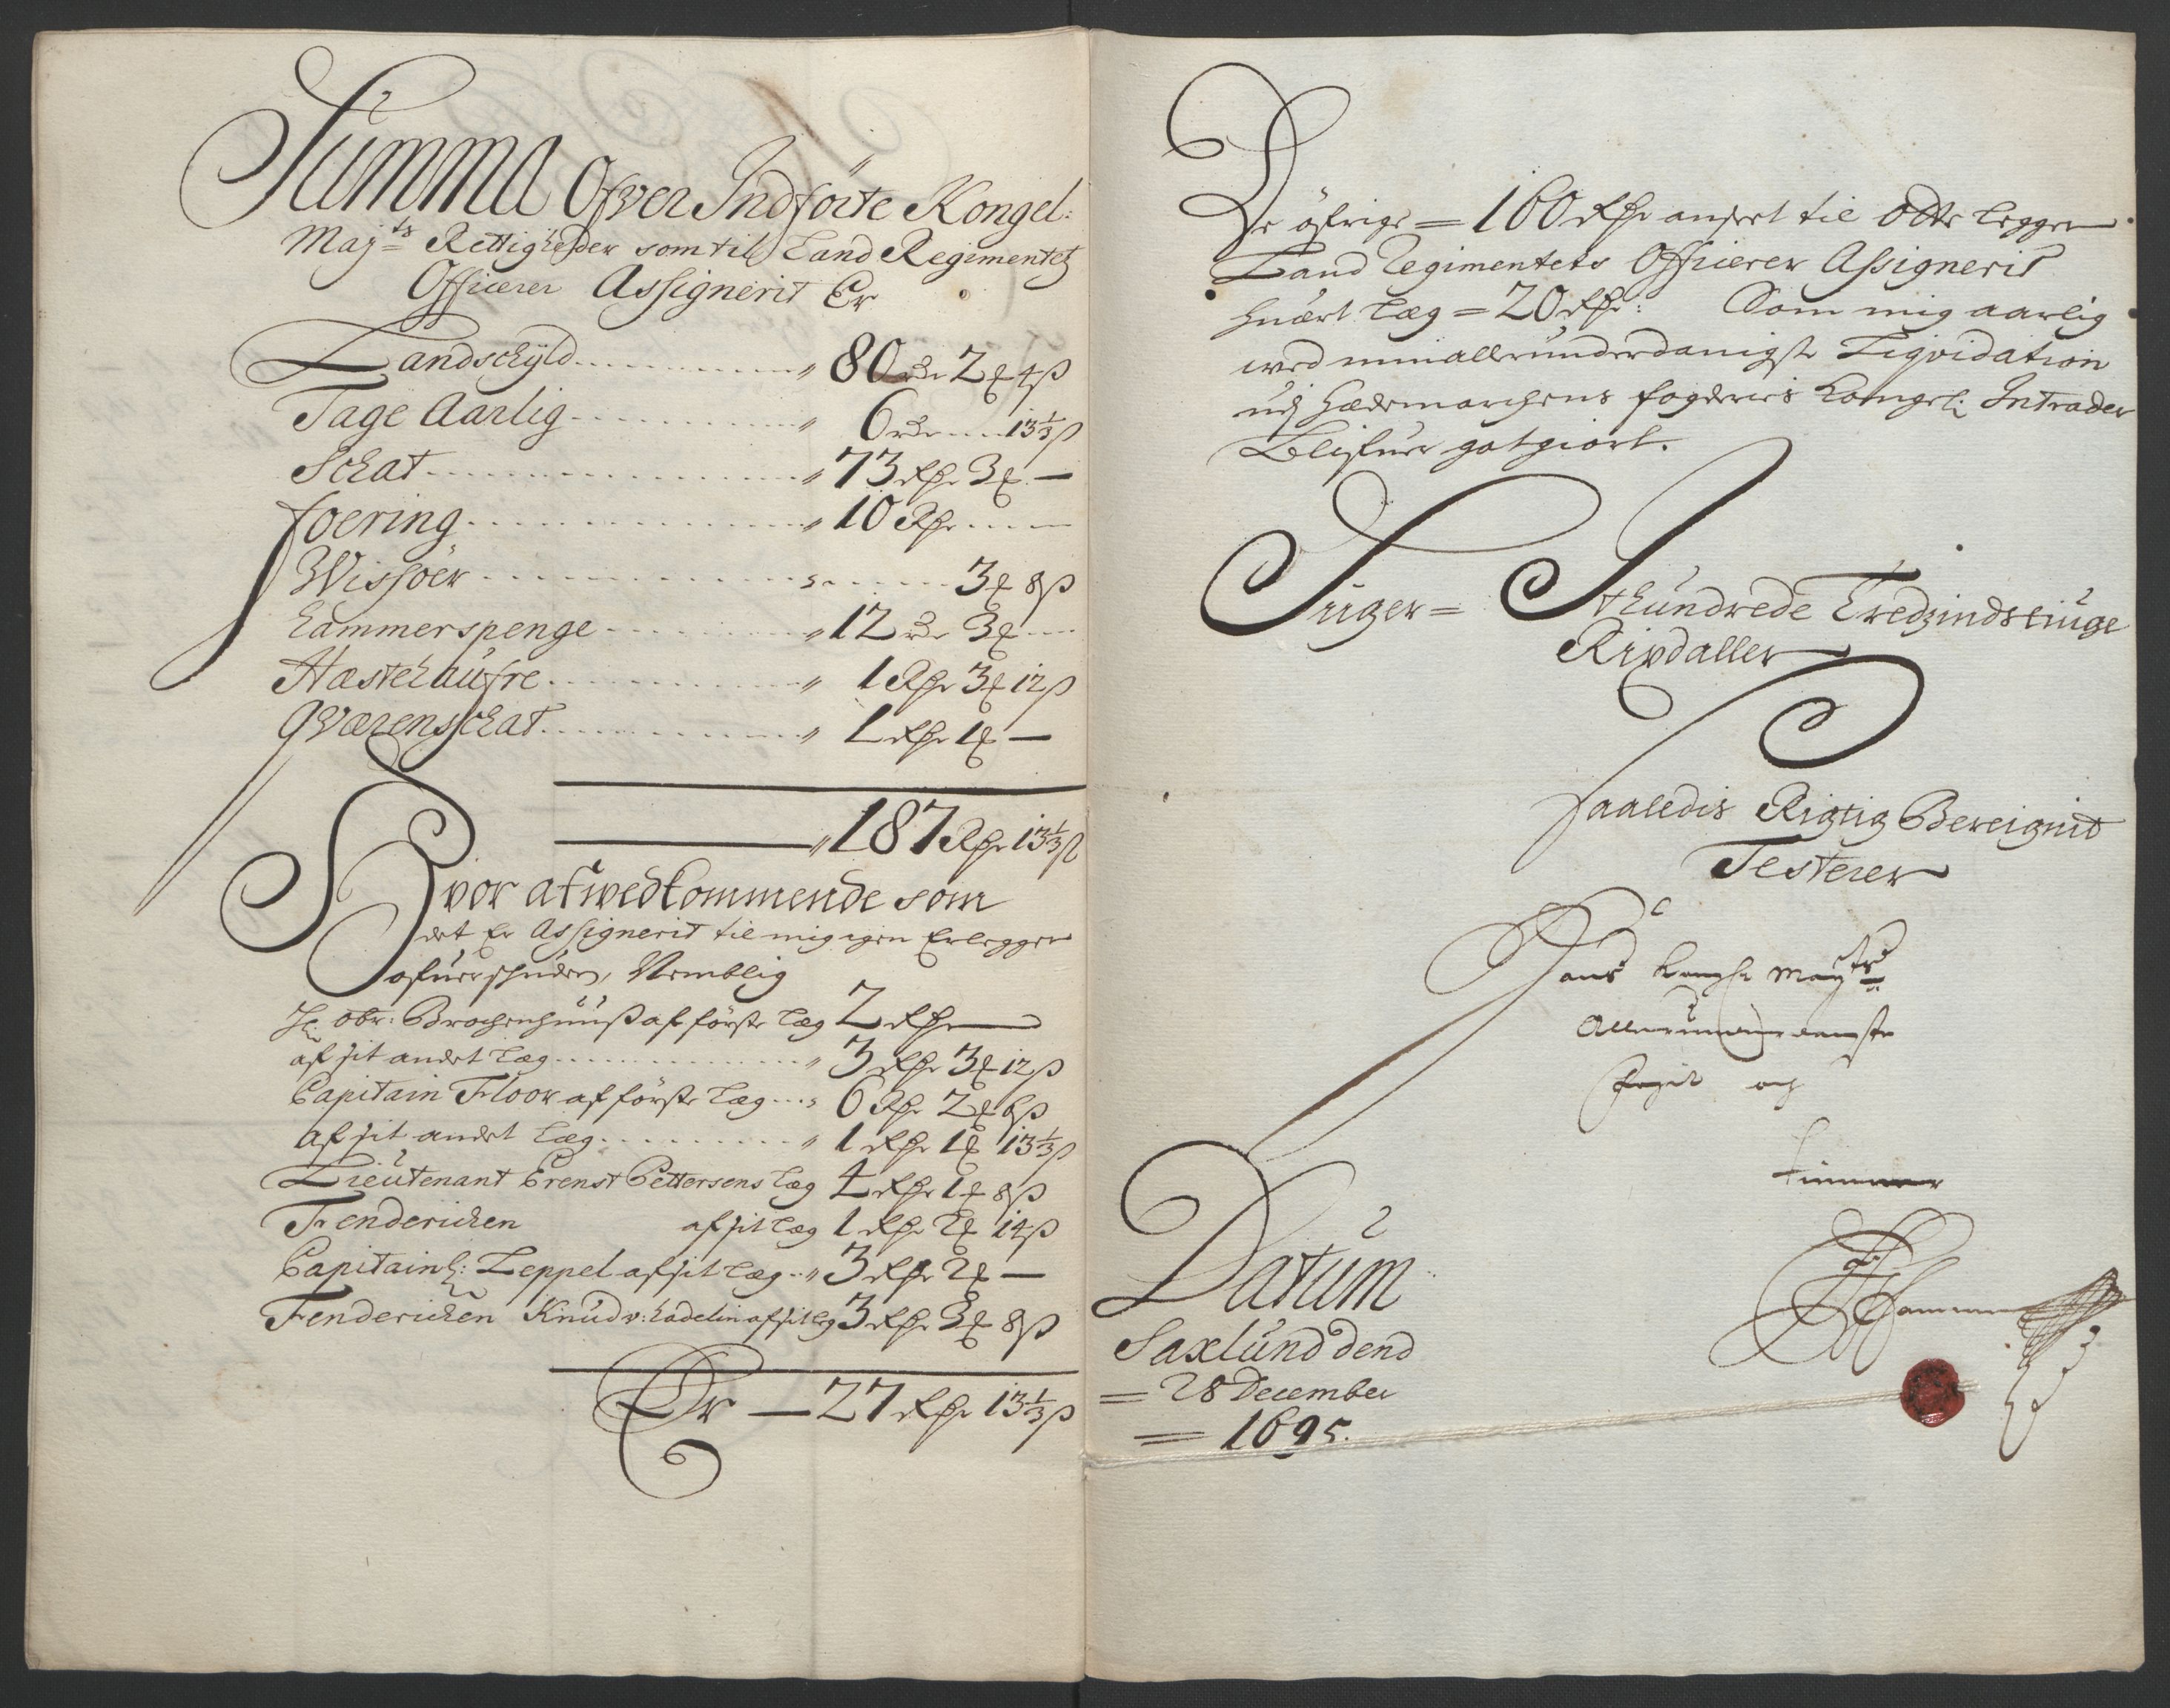 Summa Ofver Indförte Kongel:
Maj:ts Rettigheder som til Land Regimentetz
Officerer Assignerit Er
Landschÿld " 80 Rdr 2 ℥ 4 ß
Tage Aarlig " 6 Rdr 13⅓ ß
Schat " 73 Rdr 3 ℥ —
foering " 10 Rdr
Wissöer 3 ℥ 8 ß
Kammerspenge " 12 Rdr 3 ℥
Hæstehaufre " 1 Rdr 3 ℥ 12 ß
Qværenschat " 1 Rdr 1 ℥ —
" 187 Rdr 13⅓ ß
Hvor af wedkommende som
det Er Assignerit til mig igen Erlegger
ofuerschuden, Nemblig
Hr. Obr: Brochenhuuß af förste Læg 2 Rdr
af sit andet Læg " 3 Rdr 3 ℥ 12 ß
Capitain Floor af förste Læg 6 Rdr 2 ℥ 6 ß
Af sit andet Læg " 1 Rdr 1 ℥ 13⅓ ß
Lieutenant Erenst Pettersens Læg 4 Rdr 1 ℥ 8 ß
Fenderichen af sit Læg 1 Rdr 2 ℥ 14 ß
Capitain H: Leppel af sit Læg " 3 Rdr 2 ℥ —
Fenderichen Knud v: Hadelin af sit Læg 3 Rdr 3 ℥ 8 ß
Er — 27 Rdr 13⅓ ß
De öfrige = 160 Rdr ansert til Otte Legger
Land Regimentets Officerer Assignerit
huært Læg = 20 Rdr: Som mig aarlig
wed min allerunderdanigste Liqvidation
udj Hædemarchens fogderies Kongel: Intrader
Blifuer gotgiort.
Siuger = Ithundrede Tredzindstiuge
Rixdaller
Saaledis Rigtig Bereignit
Testerer
Hans Kongl: Mayts:
Allerunderdanigste
Fogit och
Tienner
Datum
Saxlund dend
= 28 December
= 1695.